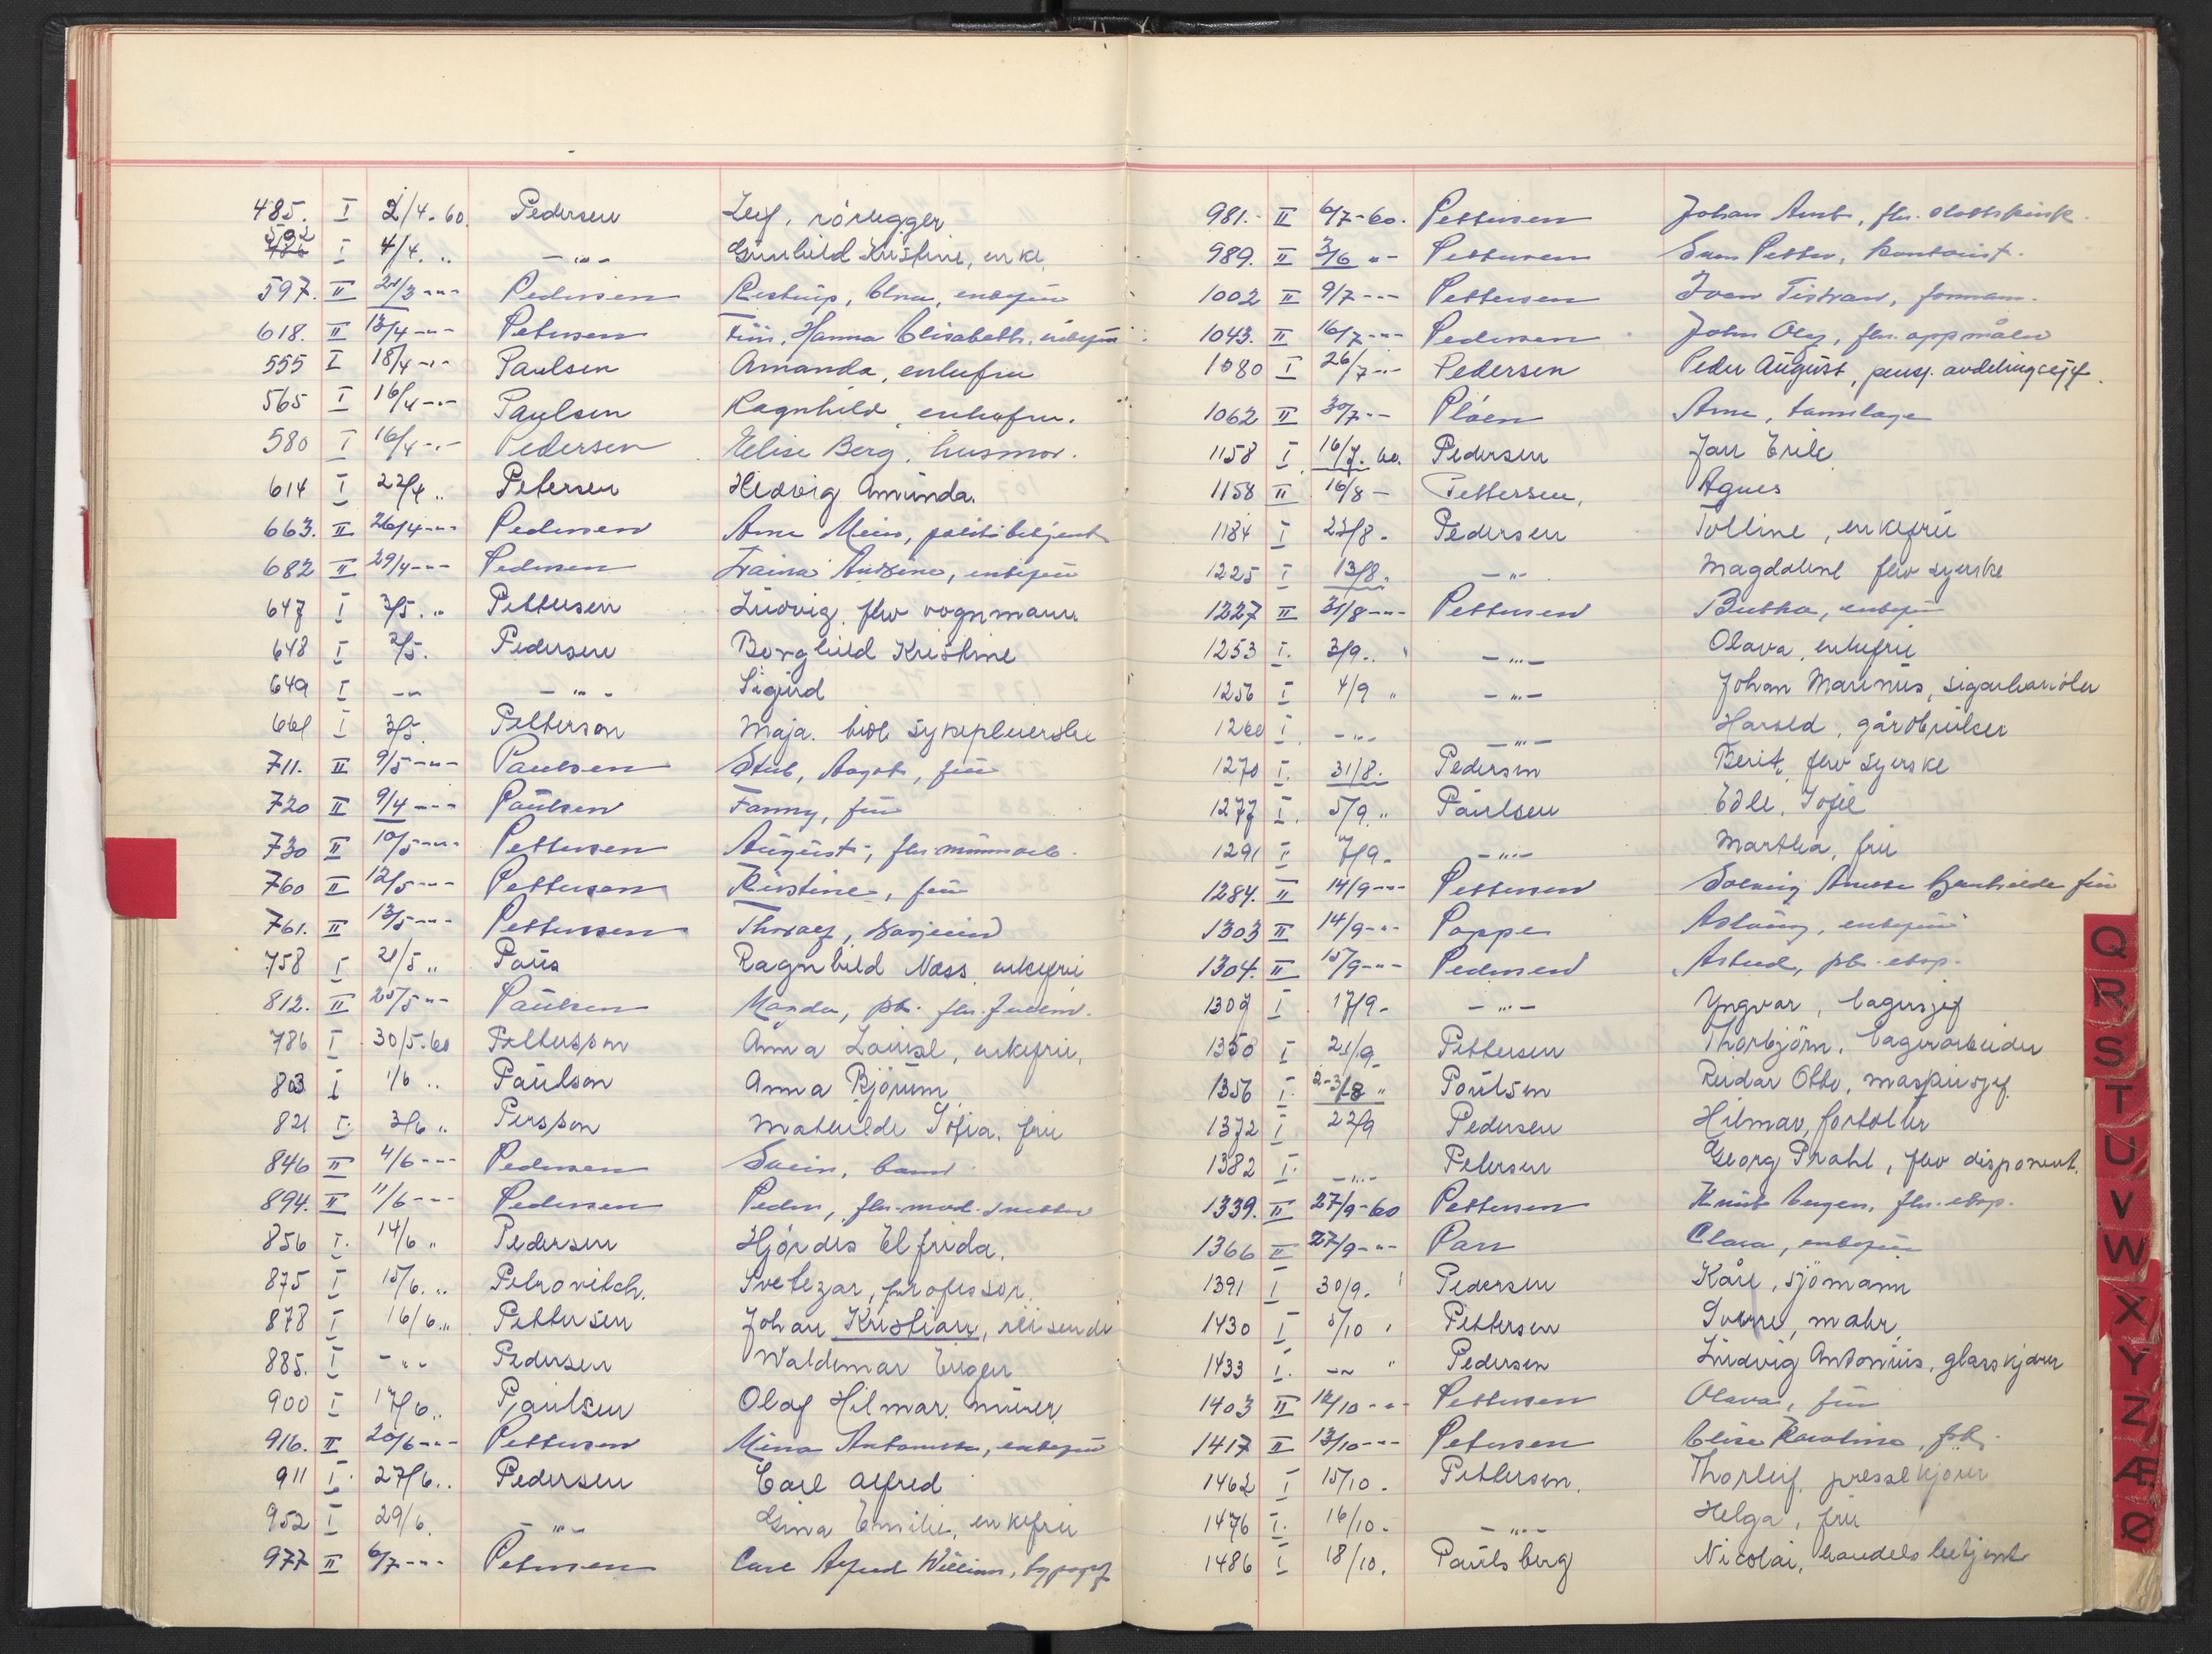 485. I 2/4-60. Pedersen Leif, rørlegger
502 I 4/4. „ -„- Gunhild Kristine, enke
597. II 24/3 -„- Pedersen Restrup, Elna, enkefru
618. II 13/4 -„- Petersen Friis, Hanna Elisabeth, enkefru
555 I 18/4 -„- Paulsen Amanda, enkefru
565 I 16/4 -„- Paulsen Ragnhild, enkefru.
580 I 16/4 -„- Pedersen Elise Berg, husmor.
614 I 22/4 „ Petersen Hedvig Amunda.
663. II 26/4 -„- Pedersen Arne Meier, politibetjent
682 II 29/4 -„- Pedersen Antine, enkefru
647 I 3/5. „ Pettersen Ludvig, fhv vognmann
648 I 2/5. Pedersen Borghild Kristine
649 I -„- -„- Sigurd
661 I 3/5. Petterson Maja. sykepleierske
711. II 9/5 -„- Paulsen Stub, Aagot, fru
720 II 9/4 -„- Paulsen Fanny, fru
730 II 10/5 -„- Pettersen August, fhv. murarb.
760 II 12/5 -„- Pettersen Kirstine, fru
761. II 13/5 -„- Pettersen Thoralf,
758 I 21/5 „ Paus Ragnhild Næss, enkefru
812. II 25/5 -„- Paulsen Magda, frk.
786 I 30/5.60 Pettersson Anna Louise, enkefru,
803 I 1/6 „ Paulson Anna Bjørum
821 I. 3/6 „ Persson Mathilde Sofia, fru
846 II 4/6 -„- Pedersen Svein, barn
894. II 11/6 -„- Pedersen Peder, fhv. mod. snekker
856 I. 14/6 „ Pedersen Hjørdis Elfrida.
875 I 15/6. „ Petrovitch. Svetezar, professor.
878 I 16/6. „ Pettersen Johan Kristian, reisende
885. I -„- Pedersen Waldemar Eugen
900 I 17/6 „ Paulsen Olaf Hilmar, murer
916. II 20/6 -„- Pettersen Mina Antonette, enkefru
911 I. 27/6 „ Pedersen Carl Alfred
952 I 29/6. -„- Gina Emilie, enkefru
977 II 6/7 -„- Petersen Carl Alfred William, typograf
981.- II 6/7-60. Pettersen Johan Amb., fhv.
989. II 3/6 „- Pettersen Sven Petter, kontorist.
1002 II 9/7 -„- Pettersen Iver Tistran, formann.
1043. II 16/7 -„- Pedersen John Olaf, fhv. oppmåler
1080 I 26/7 -„- Pedersen Peder August, pensj. avdelingssjef.
1062 II 30/7 -„- Pløen Arne, tannlege
1158 I. 16/7. 60. Pedersen Jan Erik
1158 II 16/8 - Pettersen, Agnes
1184 I 23/8 - Pedersen Tolline, enkefru
1225 I 13/8. -„- Magdalene fhv syerske
1227 II 31/8 -„- Pettersen Bertha, enkefru
1253 I. 3/9. „ -„- Olava, enkefru
1256 I 4/9 „ -„- Johan Marinus, sigarhandler
1260 I. -„- -„- Harald, gårdbruker
1270 I. 31/8. Pedersen Berit, fhv syerske
1277 I. 5/9. „ Paulsen Edle Sofie
1291 I 7/9. -„- Martha, fru
1284. II 14/9 -„- Pettersen Solveig Anette fru
1303 II 14/9 -„- Poppe Aslaug, enkefru
1304. II 15/9 -„- Pedersen Astrid, frk. eksp.
1307 I 17/9. -„- Yngvar, lagersjef
1350 I 21/9 Pettersen Thorbjørn, lagerarbeider
1356 I. 2-3/8 „ Poulsen Reidar Otto, maskinsjef
1372 I 22/9 Pedersen Hilmar, fortoller
1382 I. -„- Petersen Georg Prahl, fhv disponent.
1339. II 27/9-60 Pettersen Knut Eugen, fhv. eksp.
1366 II 27/9 -„- Parr Clara, enkefru
1391 I 30/9. Pedersen Kåre, sjømann
1430 I 5/10 „ Pettersen Sverre, maler
1433 I. -„- „ Pedersen Ludvig Antonius, glasskjærer
1403 II 12/10 -„- Pettersen Olava, fru
1417 II 13/10 -„- Petersen Elise Karoline, frk.
1462 I 15/10. Pettersen. Thorleif, pressekjører
1476 I. 16/10. -„- Helga, fru
1486 I 18/10. Paulsberg Nicolai, handelsbetjent
Q
R
S
T
U
V
W
X
Y
Z
Æ
Ø